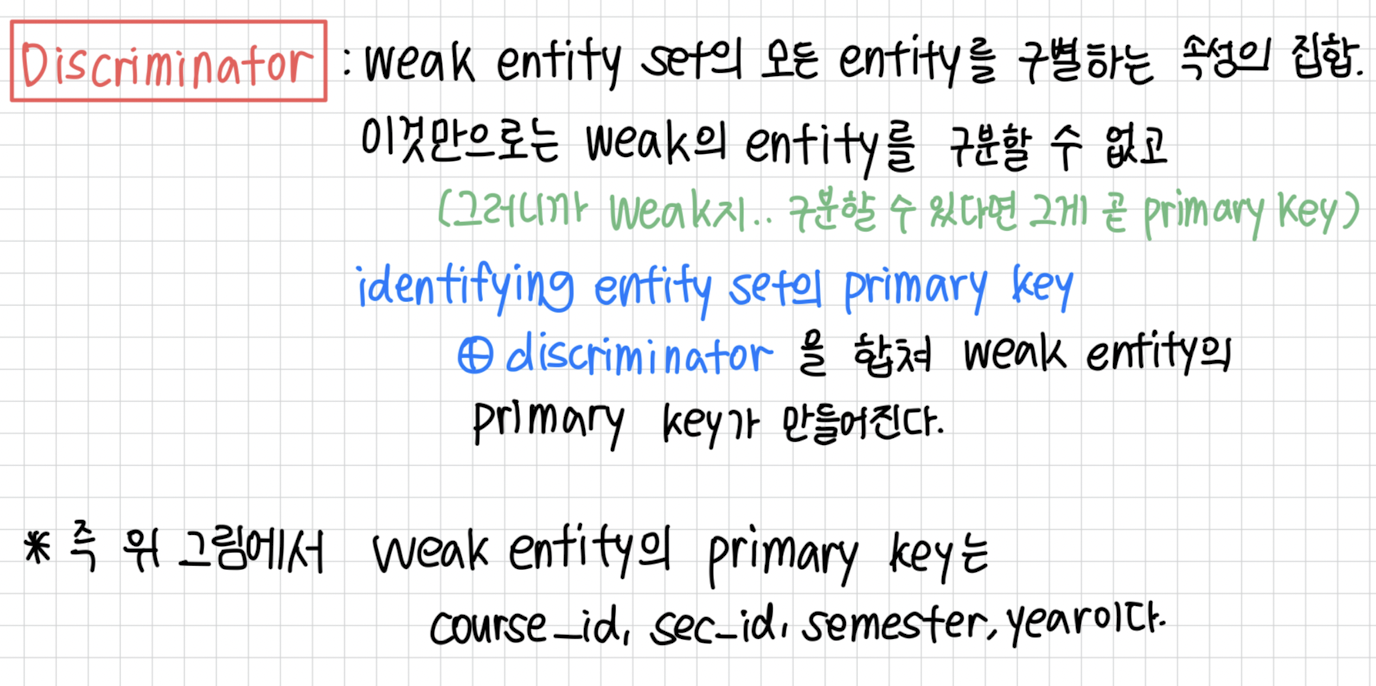 Discriminator : weak entity set의 모든 entity를 구별하는 속성의 집합.
이것만으로는 weak의 entity를 구분할 수 없고
(그러니까 weak지.. 구분할 수 있다면 그게 곧 primary key)
identifying entity set의 primary key
⊕ discriminator 을 합쳐 weak entity의
primary key가 만들어진다.
* 즉 위 그림에서 weak entity의 primary key는
course_id, sec_id, semester, year이다.